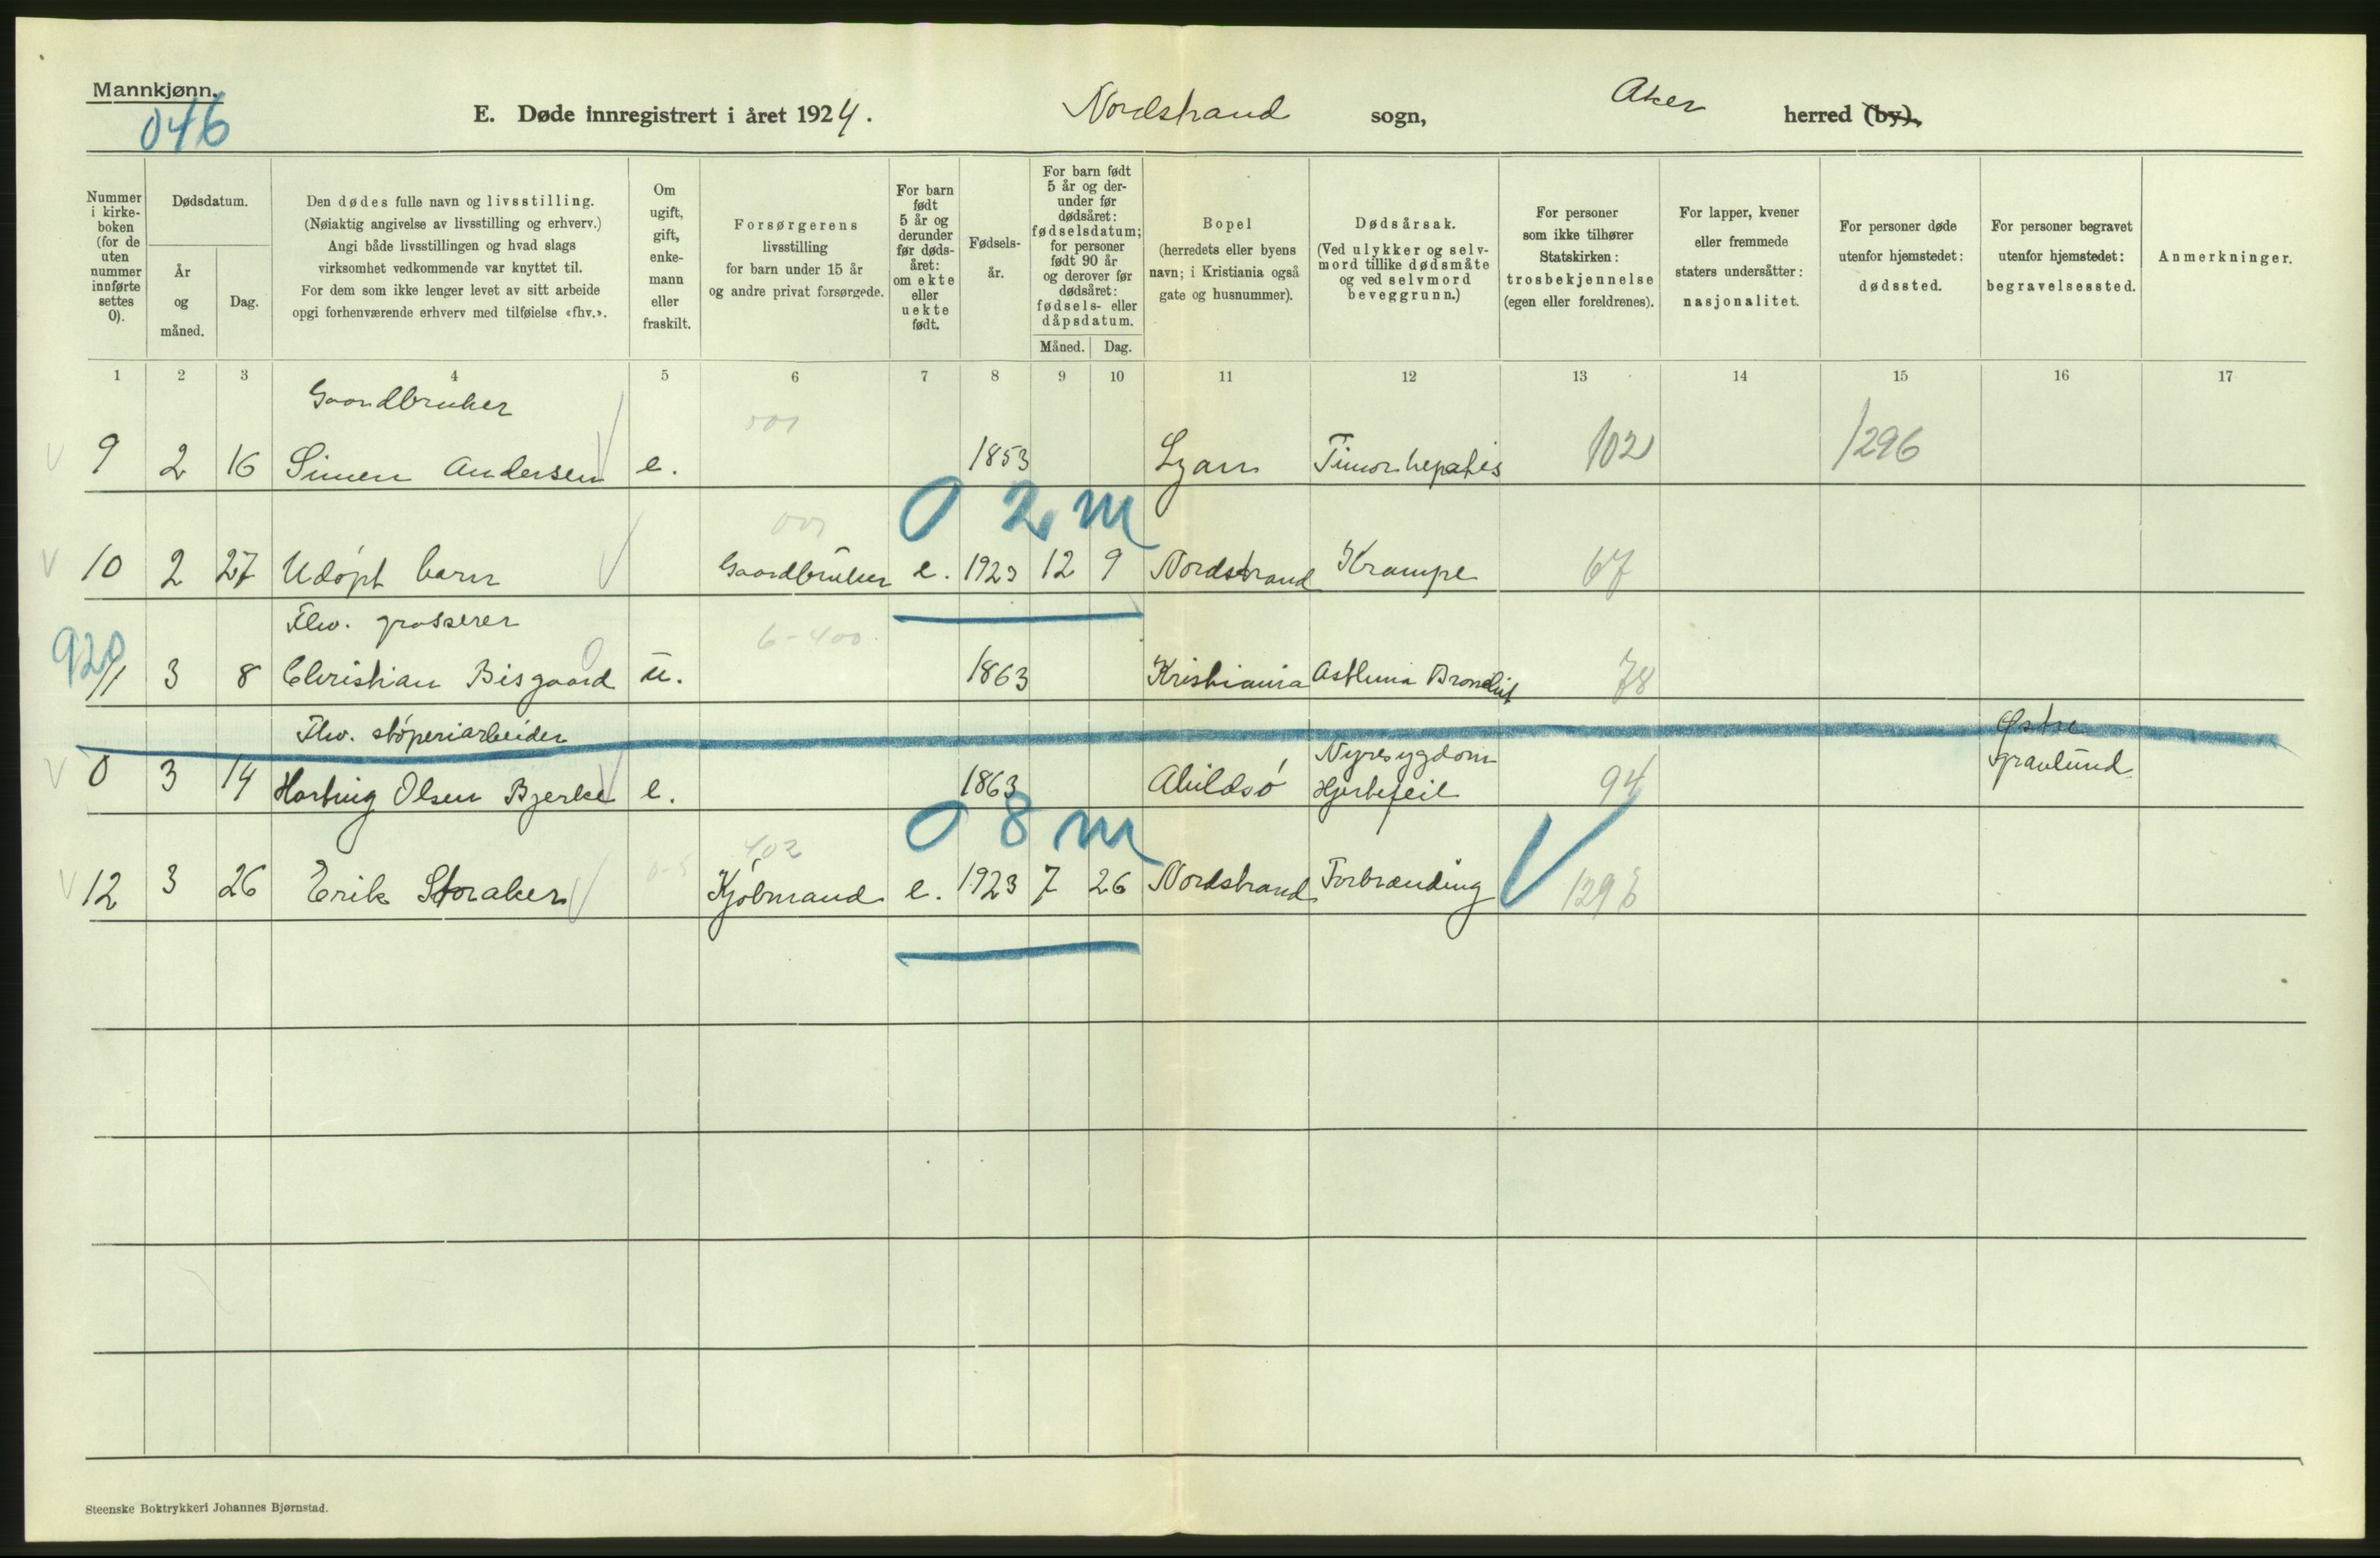 Mannkjønn.
046
E. Døde innregistrert i året 1924. Nordstrand sogn, Aker herred (by).
Nummer i kirke-boken (for de uten nummer innførte settes 0).
Dødsdatum.
År og måned.
Dag.
Den dødes fulle navn og livsstilling.
(Nøiaktig angivelse av livsstilling og erhverv.)
Angi både livsstillingen og hvad slags
virksomhet vedkommende var knyttet til.
For dem som ikke lenger levet av sitt arbeide
opgi forhenværende erhverv med tilføielse «fhv.».
Om ugift, gift, enke-mann eller fraskilt.
Forsørgerens
livsstilling
for barn under 15 år
og andre privat forsørgede.
For barn født 5 år og derunder før døds-året: om ekte eller uekte født.
Fødsels-år.
For barn født 5 år og der-under før dødsåret: fødselsdatum; for personer født 90 år og derover før dødsåret: fødsels- eller dåpsdatum.
Måned.
Dag.
Bopel
(herredets eller byens
navn; i Kristiania også
gate og husnummer).
Dødsårsak.
(Ved ulykker og selv-
mord tillike dødsmåte
og ved selvmord
beveggrunn.)
For personer
som ikke tilhører
Statskirken:
trosbekjennelse
(egen eller foreldrenes).
For lapper, kvener
eller fremmede
staters undersåtter:
nasjonalitet.
For personer døde
utenfor hjemstedet:
dødssted.
For personer begravet
utenfor hjemstedet:
begravelsessted.
Anmerkninger.
1 2 3 4 5 6 7 8 9 10 11 12 13 14 15 16 17
Gaardbruker
001
9 2 16 Simen Andersen e. 1853 Ljan Timor hepatis 102 1296
001
0 2 m
10 2 27 Udøpt barn Gaardbruker e. 1923 12 9 Nordstrand Krampe 67
Fhv. grosserer
6-400
920
11 3 8 Christian Bisgaard u. 1863 Kristiania Asthma Bronchit 78
Fhv. støperiarbeider
Nyresygdom
Østre
gravlund.
0 3 14 Hartvig Olsen Bjerke e. 1863 Abildsø Hjertefeil 94
0 8 m
402
12 3 26 Erik Storaker 0-5 Kjøbmand e. 1923 7 26 Nordstrand Forbrænding 1296
Steenske Boktrykkeri Johannes Bjørnstad.